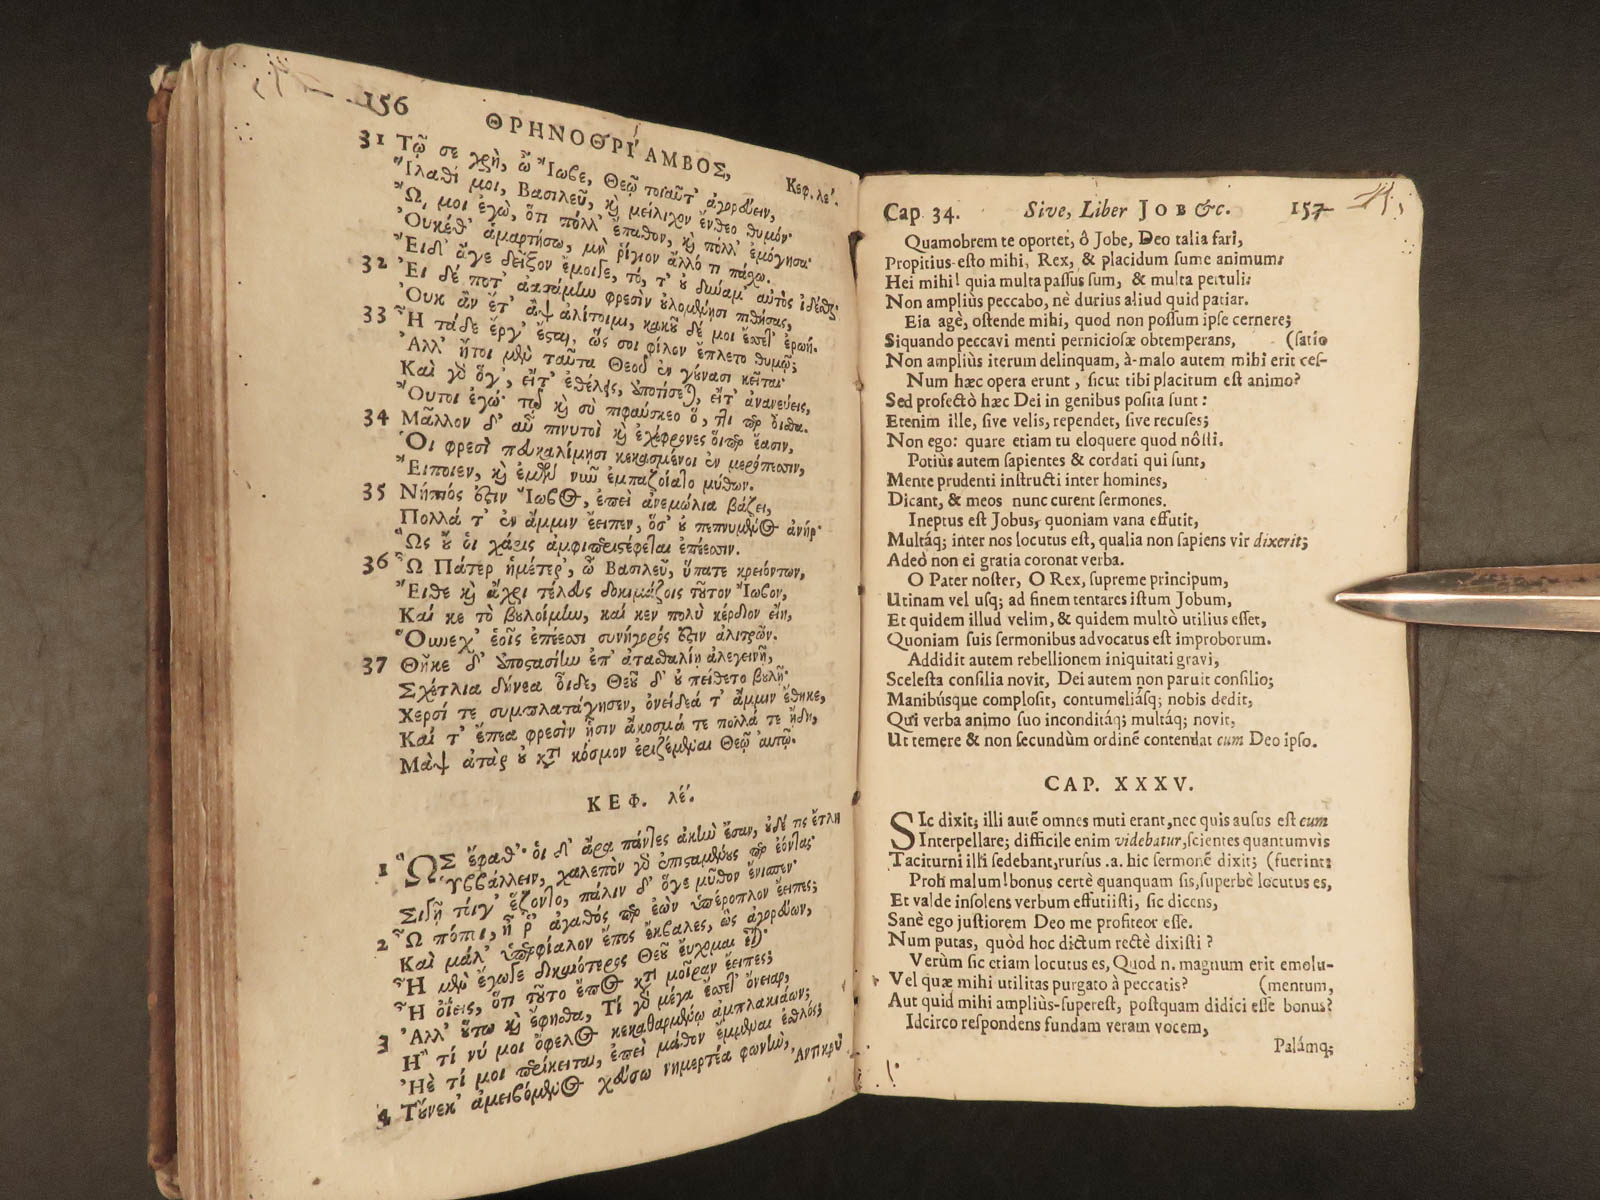 156
ΘΡΗΝΟΘΡΙ´ΑΜΒΟΣ,
Κεφ. λε´.
31 Τῷ σε χρὴ, ὦ Ἴωβε, Θεῷ τοιαῦτ' ἀγορεύειν,
Ἵλαθί μοι, Βασιλεῦ, καὶ μείλιχον ἔνθεο θυμόν·
Ὤ, μοι ἐγὼ, ὅτι πόλλ' ἔπαθον, καὶ πόλλ' ἐμόγησα·
Οὐκέθ' ἁμαρτήσω, μὴ ῥίγιον ἄλλό τι πάχω.
32 Εἰδ' ἄγε δεῖξον ἔμοιγε, τό, τ' οὐ δύναμ' αὐτὸς ἰδέσθαι·
Εἰ δέ ποτ' φρεσὶν οὐλομένῃσι πιθήσας,
Οὐκ ἂν ἔτ' ἂψ ἀλίτοιμι, κακοῦ δέ μοι ἔσσετ' ἐρωή.
33 Ἦ τάδε ἔργ' ἔσται, ὥς σοι φίλον ἔπλετο θυμῷ;
Ἀλλ' ἤτοι μὲν ταῦτα Θεοῦ ἐν γούνασι κεῖται·
Καὶ γὸ ὅγ', εἴτ' ἐθέλῃς, ὑποτίσεται, εἴτ' ἀνανεύεις,
Οὔτοι ἐγώ· καὶ σὺ πιφαύσκεο ὅ, τι περ οἶσθα.
34 Μᾶλλον δ' αὖ πινυτοὶ καὶ ἐχέφρονες οἵπερ ἔασιν,
Οἱ φρεσὶ πευκαλίμῃσι κεκασμένοι ἐν μερόπεσσιν,
Εἴποιεν, καὶ ἐμῶν νῦν ἐμπαζοίατο μύθων.
35 Νήπιός ἐστιν Ἴωβος, ἐπεὶ ἀνεμώλια βάζει,
Πολλά τ' ἐν ἄμμιν ἔειπεν, ὅσ' οὐ πεπνυμένος ἀνήρ·
Ὣς οὔ οἱ χάρις ἀμφιπεριστέφεται ἐπέεσσιν.
36 Ὦ Πάτερ ἡμέτερ', ὦ Βασιλεῦ, ὕπατε κρειόντων,
Εἴθε καὶ ἄχρι τέλους δοκιμάζοις τοῦτον Ἴωβον,
Καί κε τὸ βουλοίμην, καί κεν πολὺ κέρδιον εἴη,
Οὕνεκ' ἑοῖς ἐπέεσσι συνήγορός ἐστιν ἀλιτρῶν.
37 Θῆκε δ' ὑποστασίην ἐπ' ἀτασθαλίῃ ἀλεγεινῇ,
Σχέτλια δήνεα οἶδε, Θεοῦ δ' οὐ πείθετο βουλῇ·
Χερσί τε συμπλατάγησεν, ὀνείδεά τ' ἄμμιν ἔθηκε,
Καί τ' ἔπεα φρεσὶν ᾗσιν ἄκοσμά τε πολλά τε ᾔδη,
Μὰψ ἀτὰρ οὐ κατὰ κόσμον ἐριζέμεναι Θεῷ αὐτῷ.
ΚΕΦ. λέ.
1 ὯΣ ἔφαθ'· οἱ δ' ἄρα πάντες ἀκὴν ἔσαν, οὐδέ τις ἔτλη
Ὑββάλλειν, χαλεπὸν γὸ ἐπισταμένους περ ἐόντας·
Σιγῇ τοίγ' ἕζοντο, πάλιν δ' ὅγε μῦθον ἔνισπεν·
2 Ὢ πόποι, ἦ ῥ' ἀγαθός περ ἐὼν ὑπέροπλον ἔειπες;
Καὶ μάλ' ὑπερφίαλον ἔπος ἔκβαλες, ὡς ἀγορεύων,
Ἦ μὲν ἔγωγε δικαιότερος Θεοῦ εὔχομαι εἶναι·
Ἦ ὀΐεις, ὅτι τοῦτο ἔπος κατὰ μοῖραν ἔειπες;
3 Ἀλλ' οὕτω καὶ ἔφησθα, Τί γὸ μέγα ἔσσετ' ὄνειαρ,
Ἤ τί νύ μοι ὄφελος κεκαθαρμένῳ ἀμπλακιάων;
Ἠὲ τί μοι περίκειται, ἐπεὶ μάθον ἔμμεναι ἐσθλός;
4 Τοὔνεκ' ἀμειβόμενος χεύσω νημερτέα φωνὴν,
Ἀντικρὺ
Cap. 34. Sive, Liber JOB &c. 157
Quamobrem te oportet, ô Jobe, Deo talia fari,
Propitius esto mihi, Rex, & placidum sume animum:
Hei mihi! quia multa passus sum, & multa pertuli:
Non ampliùs peccabo, nè durius aliud quid patiar.
Eia agè, ostende mihi, quod non possum ipse cernere;
Siquando peccavi menti perniciosæ obtemperans, (satio
Non ampliùs iterum delinquam, à-malo autem mihi erit ces-
Num hæc opera erunt, sicut tibi placitum est animo?
Sed profectò hæc Dei in genibus posita sunt:
Etenim ille, sive velis, rependet, sive recuses;
Non ego: quare etiam tu eloquere quod nôsti.
Potiùs autem sapientes & cordati qui sunt,
Mente prudenti instructi inter homines,
Dicant, & meos nunc curent sermones.
Ineptus est Jobus, quoniam vana effutit,
Multáq; inter nos locutus est, qualia non sapiens vir dixerit;
Adeò non ei gratia coronat verba.
O Pater noster, O Rex, supreme principum,
Utinam vel usq; ad finem tentares istum Jobum,
Et quidem illud velim, & quidem multò utilius esset,
Quoniam suis sermonibus advocatus est improborum.
Addidit autem rebellionem iniquitati gravi,
Scelesta consilia novit, Dei autem non paruit consilio;
Manibúsque complosit, contumeliásq; nobis dedit,
Qui verba animo suo inconditáq; multáq; novit,
Ut temere & non secundùm ordinē contendat cum Deo ipso.
CAP. XXXV.
SIc dixit; illi autē omnes muti erant, nec quis ausus est eum
Interpellare; difficile enim videbatur, scientes quantumvis
Taciturni illi sedebant, rursus .a. hic sermonē dixit; (fuerint:
Proh malum! bonus certè quanquam sis, superbè locutus es,
Et valde insolens verbum effutiisti, sic dicens,
Sanè ego justiorem Deo me profiteor esse.
Num putas, quòd hoc dictum rectè dixisti?
Verùm sic etiam locutus es, Quod n. magnum erit emolu-
Vel quæ mihi utilitas purgato à peccatis? (mentum,
Aut quid mihi ampliùs-superest, postquam didici esse bonus?
Idcirco respondens fundam veram vocem,
Palámq;